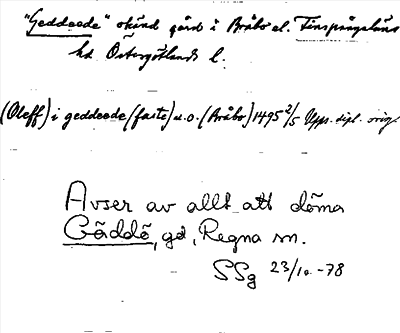 "Geddeede" okänd gård i Bråbo el. Finspångaläns
hd Östergötlands l.
(Oleff) i geddeede (faste) u.o. (Bråbo) 1495 2/5 Upps. dipl. orig.
Avser av allt att döma
Gäddö, gd, Regna sn.
SSg 23/10 -78